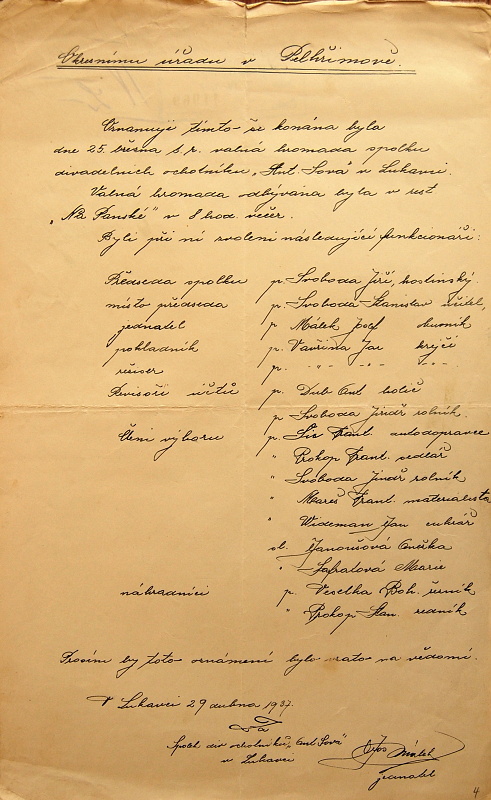 Okresnímu úřadu v Pelhřimově.
Oznamuji tímto že konána byla
dne 25. března t. r. valná hromada spolku
divadelních ochotníku „Ant. Sová" v Lukavci.
Valná hromada odbývána byla v rest
„Na Panské" v 8 hod. večer.
Byli při ní zvoleni následující funkcionáři:
Předseda spolku p. Svoboda Jiří, hostinský.
místo předseda p. Svoboda Stanislav učitel,
jednatel p. Málek Josef obuvník
pokladník p. Vavřina Jar krejčí
režiser p. -"- -"- -"-
Revisoři účtů p. Dub Ant holič
p Svoboda Jindř rolník.
Členi výboru p. Frant. autodopravce
" Prokop Frant. sedlář
" Svoboda Jindř rolník
" Mareš Frant. materialista
" Wideman Jan cukrář
sl. Janoušová Anežka
" Šafratová Marie
náhradníci p. Veselka Boh. řezník
" Prokop Stan. sedník
Prosím by toto oznámení bylo vzato na vědomí.
V Lukavci 29 dubna 1937.
Za
Spolek div ochotníků „Ant Sová"
v Lukavci
Jos Málek
jednatel
4